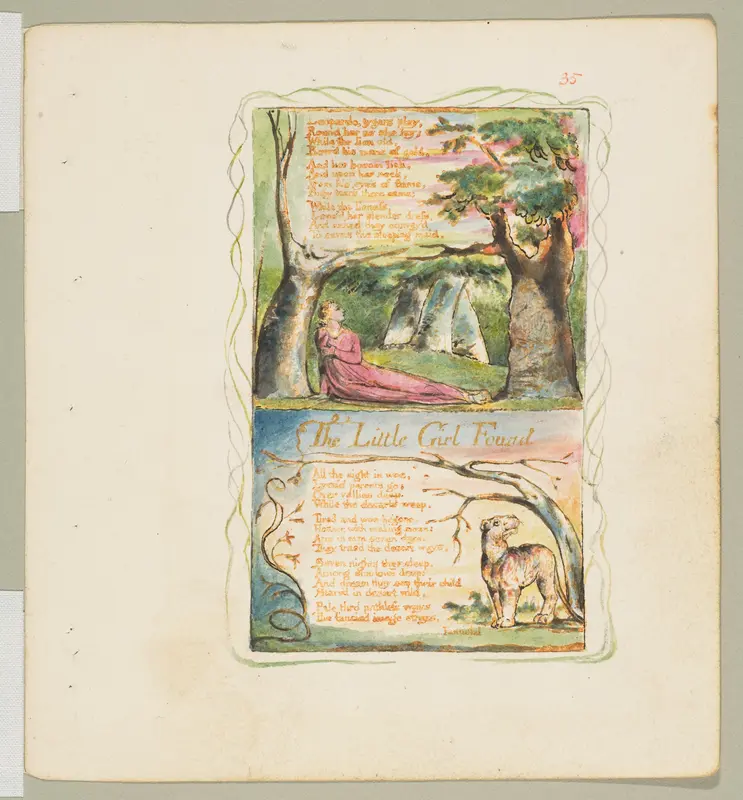 35
Leopards, tygers play,
Round her as she lay;
While the lion old,
Bow'd his mane of gold,
And her bosom lick,
And upon her neck,
From his eyes of flame,
Ruby tears there came;
While the lioness
Loos'd her slender dress,
And naked they convey'd
To caves the sleeping maid.
The Little Girl Found
All the night in woe,
Lyca's parents go;
Over vallies deep,
While the desarts weep.
Tired and woe-begone,
Hoarse with making moan;
Arm in arm seven days,
They trac'd the desart ways.
Seven nights they sleep,
Among shadows deep;
And dream they see their child
Starv'd in desart wild.
Pale thro pathless ways
The fancied image strays,